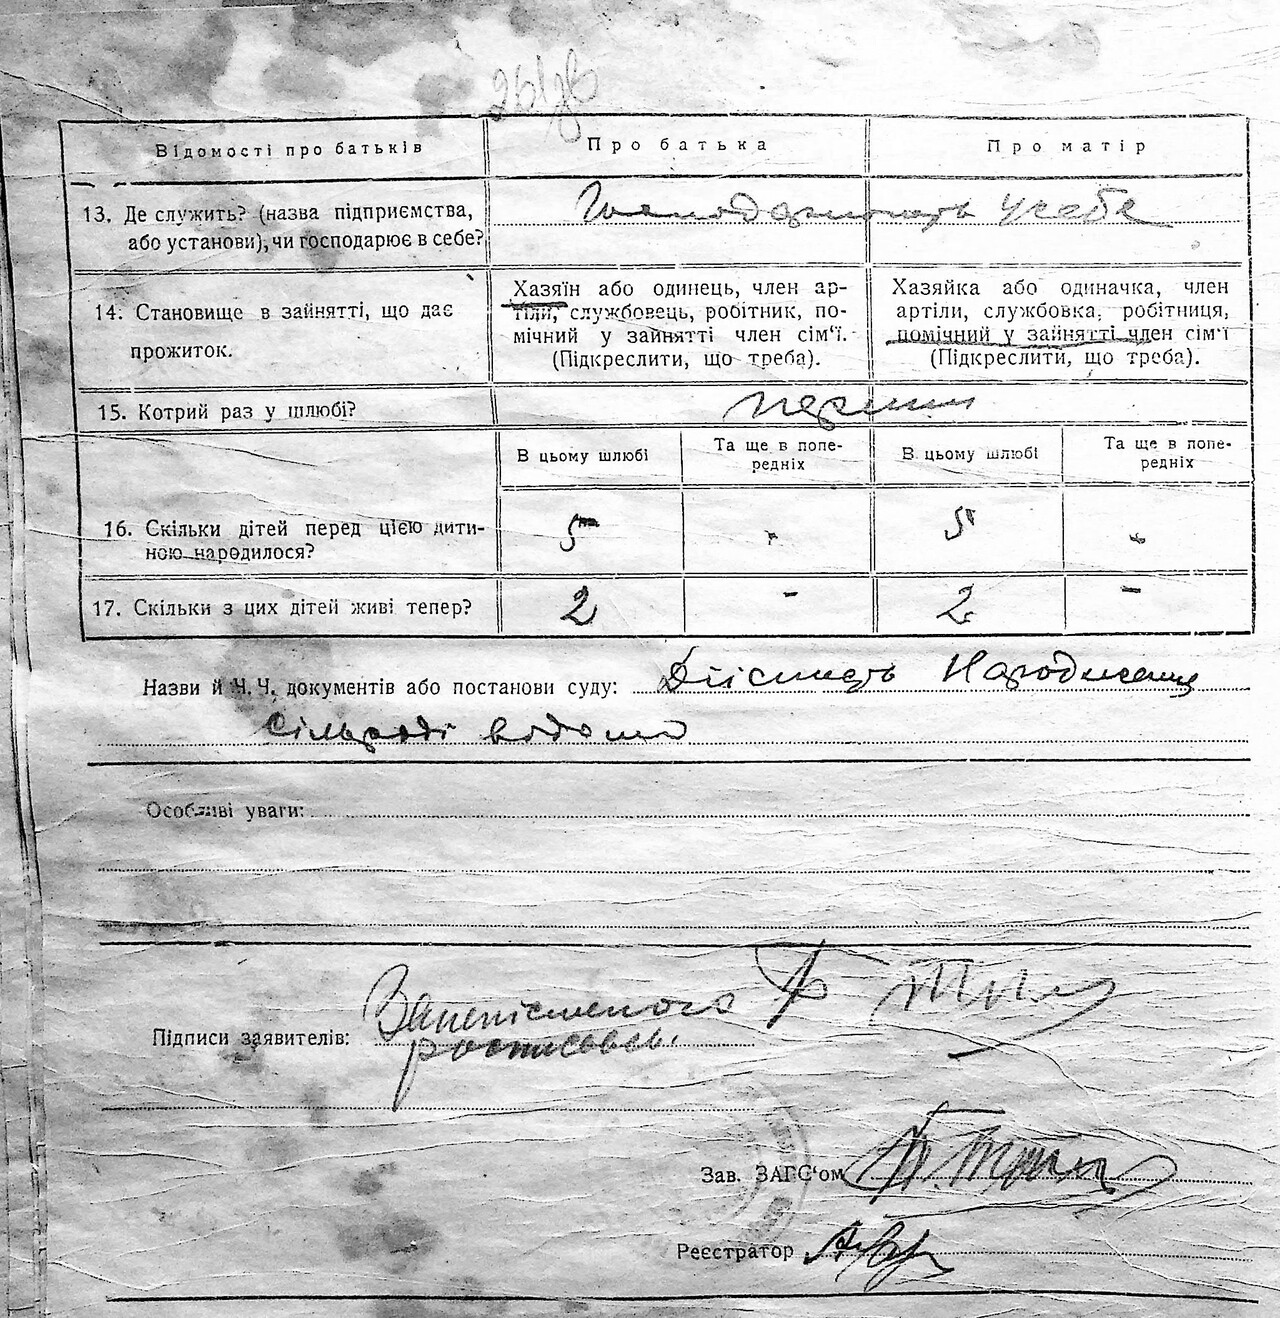 261зв
Відомості про батьків
Про батька
Про матір
13. Де служить? (назва підприємства,
або установи), чи господарює в себе?
Господарюють у себе
14. Становище в зайнятті, що дає
прожиток.
Хазяїн або одинець, член ар-
тілі, службовець, робітник, по-
мічний у зайнятті член сім'ї.
(Підкреслити, що треба).
Хазяйка або одиначка, член
артіли, службовка, робітниця,
помічний у зайнятті член сім'ї
(Підкреслити, що треба).
15. Котрий раз у шлюбі?
перший
В цьому шлюбі
Та ще в попе-
редніх
В цьому шлюбі
Та ще в попе-
редніх
16. Скільки дітей перед цією дити-
ною народилося?
5 - 5 -
17. Скільки з цих дітей живі тепер?
2 - 2 -
Назви й Ч. Ч. документів або постанови суду: Дійсність Народження
сільраді відома
Особливі уваги:
Підписи заявителів: За неписьменого
росписавсь.
Зав. ЗАГС'ом
Реєстратор